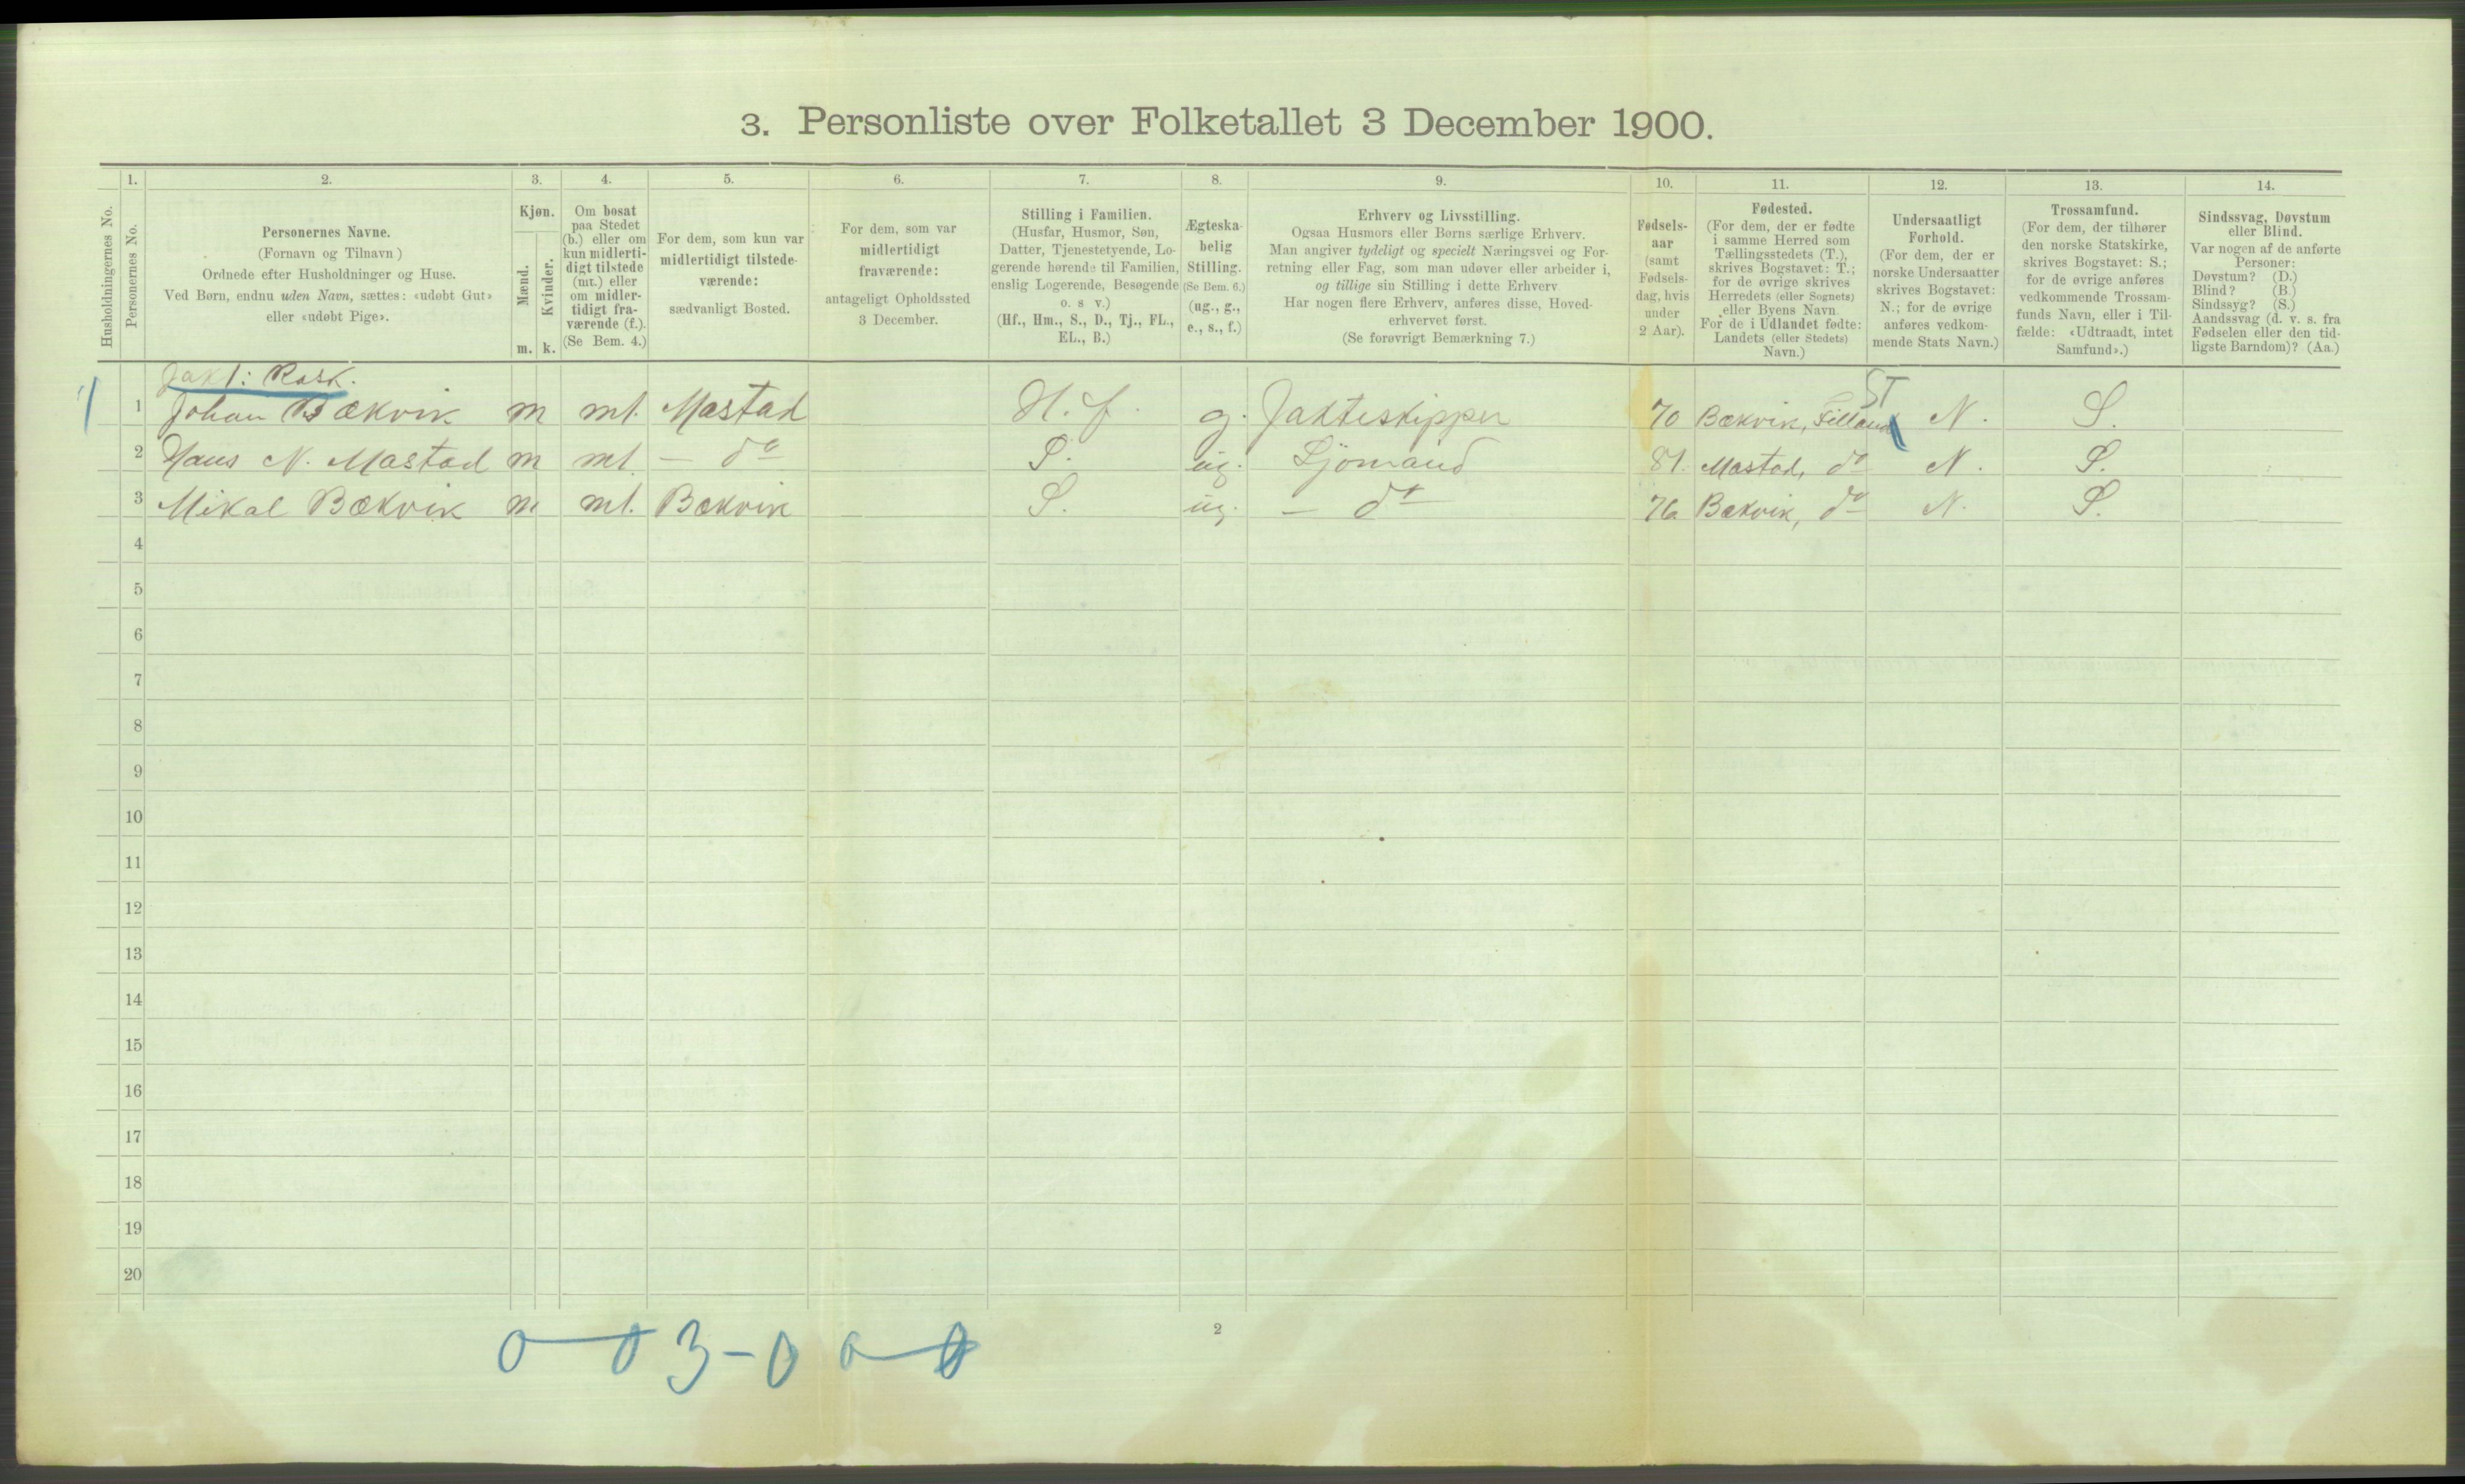 3. Personliste over Folketallet 3 December 1900.
Husholdningernes No.
1.
Personernes No.
2.
Personernes Navne.
(Fornavn og Tilnavn)
Ordnede efter Husholdninger og Huse.
Ved Børn, endnu uden Navn, sættes: «udøbt Gut»
eller «udøbt Pige».
3.
Kjøn.
Mænd.
Kvinder.
m. k.
4.
Om bosat
paa Stedet
(b.) eller om
kun midlerti-
digt tilstede
(mt.) eller
om midler-
tidigt fra-
værende (f.).
(Se Bem. 4.)
5.
For dem, som kun var
midlertidigt tilstede-
værende:
sædvanligt Bosted.
6.
For dem, som var
midlertidigt
fraværende:
antageligt Opholdssted
3 December.
7.
Stilling i Familien.
(Husfar, Husmor, Søn,
Datter, Tjenestetyende, Lo-
gerende hørende til Familien,
enslig Logerende, Besøgende
o. s v.)
(Hf., Hm., S., D., Tj., FL.,
EL., B.)
8.
Ægteska-
belig
Stilling.
(Se Bem. 6.)
(ug., g.,
e., s., f.)
9.
Erhverv og Livsstilling.
Ogsaa Husmors eller Børns særlige Erhverv.
Man angiver tydeligt og specielt Næringsvei og For-
retning eller Fag, som man udøver eller arbeider i,
og tillige sin Stilling i dette Erhverv
Har nogen flere Erhverv, anføres disse, Hoved-
erhvervet først.
(Se forøvrigt Bemærkning 7.)
10.
Fødsels-
aar
(samt
Fødsels-
dag, hvis
under
2 Aar).
11.
Fødested.
(For dem, der er fødte
i samme Herred som
Tællingsstedets (T.),
skrives Bogstavet: T.;
for de øvrige skrives
Herredets (eller Sognets)
eller Byens Navn.
For de i Udlandet fødte:
Landets (eller Stedets)
Navn.)
12.
Undersaatligt
Forhold.
(For dem, der er
norske Undersaatter
skrives Bogstavet:
N.; for de øvrige
anføres vedkom-
mende Stats Navn.)
13.
Trossamfund.
(For dem, der tilhører
den norske Statskirke,
skrives Bogstavet: S.;
for de øvrige anføres
vedkommende Trossam-
funds Navn, eller i Til-
fælde: «Udtraadt, intet
Samfund».)
14.
Sindssvag, Døvstum
eller Blind.
Var nogen af de anførte
Personer:
Døvstum? (D.)
Blind? (B.)
Sindssyg? (S.)
Aandssvag (d. v. s. fra
Fødselen eller den tid-
ligste Barndom)? (Aa.)
Jakt: Rask.
ST
1 Johan Bækvik m mt. Mastad H. f. g. Jakteskipper 70 Bækvik, Filland N. S.
2 Hans N. Mastad m mt. — do S. ug. Sjömand 81. Mastad, do N. S.
3 Mikal Bækvik m mt. Bækvik S. ug. — do 76 Bækvik, do N. S.
4
5
6
7
8
9
10
11
12
13
14
15
16
17
18
19
20
0 — 0 3 - 0 0 — 0
2